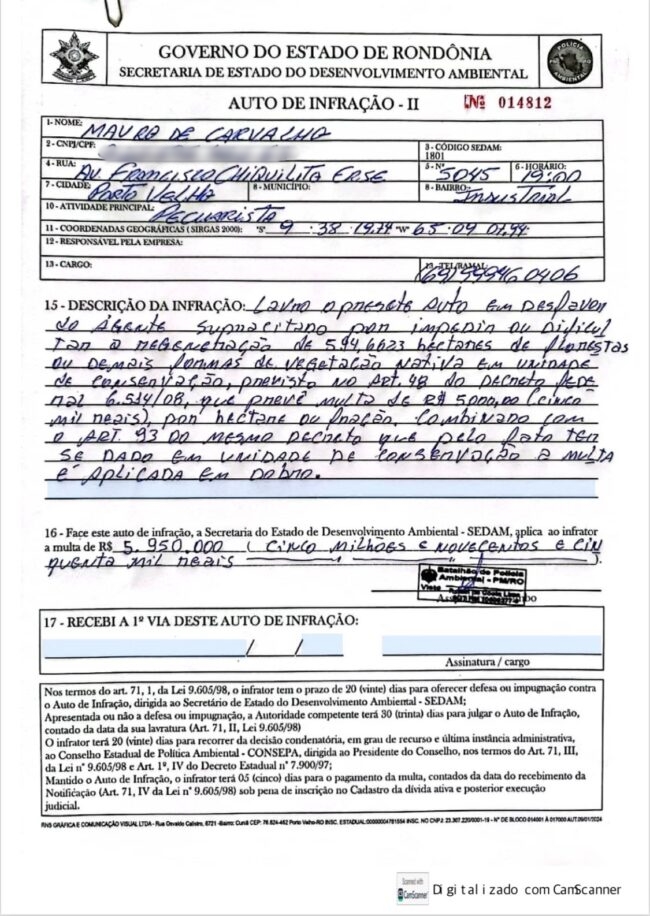 GOVERNO DO ESTADO DE RONDÔNIA
SECRETARIA DE ESTADO DO DESENVOLVIMENTO AMBIENTAL
AUTO DE INFRAÇÃO - II Nº 014812
1- NOME: MAURO DE CARVALHO
2 - CNPJ/CPF:
3 - CÓDIGO SEDAM:
1801
4 - RUA: Av. FRANCISCO CHIQUILITA ERSE
5 - Nº 5045
6 - HORÁRIO: 19:00
7 - CIDADE: PORTO VELHO
8 - MUNICÍPIO:
8 - BAIRRO: INDUSTRIAL
10 - ATIVIDADE PRINCIPAL: PECUARISTA
11 - COORDENADAS GEOGRÁFICAS ( SIRGAS 2000): "S" 9 . 38 . 19.74 "W" 65 . 09 07.94
12 - RESPONSÁVEL PELA EMPRESA:
13 - CARGO:
TEL/RAMAL: (69) 99946 0406
15 - DESCRIÇÃO DA INFRAÇÃO: LAVRO O PRESETE AUTO EM DESFAVOR
DO AGENTE SUPRACITADO POR IMPEDIR OU DIFICUL
TAR A REGENERAÇÃO DE 594,6623 HECTARES DE FLORESTAS
OU DEMAIS FORMAS DE VEGETAÇÃO NATIVA EM UNIDADE
DE CONSERVAÇÃO, PREVISTO NO ART. 48 DO DECRETO FEDE
RAL 6.514/08, QUE PREVÊ MULTA DE R$ 5000,00 (CINCO
MIL REAIS), POR HECTARE OU FRAÇÃO. COMBINADO COM
O ART. 93 DO MESMO DECRETO QUE PELO FATO TER
SE DADO EM UNIDADE DE CONSERVAÇÃO A MULTA
É APLICADA EM DOBRO.
16 - Face este auto de infração, a Secretaria do Estado de Desenvolvimento Ambiental - SEDAM, aplica ao infrator
a multa de R$ 5.950.000 ( CINCO MILHÕES E NOVECENTOS E CIN
QUENTA MIL REAIS ).
Batalhão de Polícia
Ambiental - PM/RO
Visto
17 - RECEBI A 1ª VIA DESTE AUTO DE INFRAÇÃO:
/ /
Assinatura / cargo
Nos termos do art. 71, 1, da Lei 9.605/98, o infrator tem o prazo de 20 (vinte) dias para oferecer defesa ou impugnação contra
o Auto de Infração, dirigida ao Secretário de Estado do Desenvolvimento Ambiental - SEDAM;
Apresentada ou não a defesa ou impugnação, a Autoridade competente terá 30 (trinta) dias para julgar o Auto de Infração,
contado da data da sua lavratura (Art. 71, II, Lei 9.605/98)
O infrator terá 20 (vinte) dias para recorrer da decisão condenatória, em grau de recurso e última instância administrativa,
ao Conselho Estadual de Política Ambiental - CONSEPA, dirigida ao Presidente do Conselho, nos termos do Art. 71, III,
da Lei nº 9.605/98 e Art. 1º, IV do Decreto Estadual nº 7.900/97;
Mantido o Auto de Infração, o infrator terá 05 (cinco) dias para o pagamento da multa, contados da data do recebimento da
Notificação (Art. 71, IV da Lei nº 9.605/98) sob pena de inscrição no Cadastro da dívida ativa e posterior execução
judicial.
RNS GRÁFICA E COMUNICAÇÃO VISUAL LTDA - Rua Osvaldo Calistro, 6721 -Bairro: Cuniã CEP: 76.824-462 Porto Velho-RO INSC. ESTADUAL:00000004781554 INSC. NO CNPJ: 23.307.220/0001-19 - Nº DE BLOCO:014001 À 017000 AUT.09/01/2024
Scanned with
CamScanner
Digitalizado com CamScanner